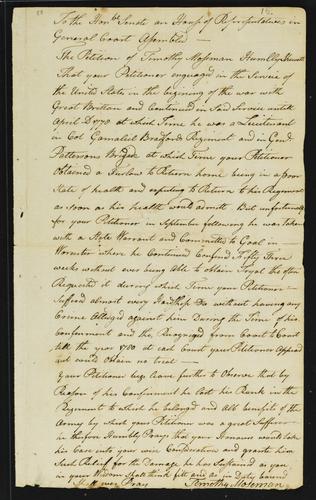 To the Honbl Senate an House of Representatives in
General Court Assembled —
The Petition of Timothy Mossman Humbly Sheweth
That your Petitioner engaged in the Service of
the United States in the begining of the war with
Great Brittan and Continued in Said Service untill
April AD 1778 at which Time he was a Lieutenant
in Col Gamaliel Bradfords Regiment and in Genl
Pattersons Brigade at which Time your Petitioner
obtained a Furlow to Return home being in a poor
State of health and expecting to Return to his Regiment
as soon as his health would admitt But unfortunately
for your Petitioner in September following he was taken
with a State Warrant and Committed to Goal in
Worcester where he Continued Confined Fifty Three
weeks without ever being Able to obtain Tryal tho often
Requested it during which Time your Petitioner
Suffered almost every Hardship &c without having any
Crime Alledged against him During the Time of his
Confinement and then Recognized from Court to Court
till the year 1780 at each Court your Petitioner Appeard
but could obtain no trial —
Your Petitioner begs leave further to Observe that by
Reason of his Confinement he Lost his Rank in the
Regiment to which he belonged and all benefit of the
Army by which your Petitioner was a great Sufferer
he therefore Humbly Prays that your Honours would take
his Case into your wise Consideration and grant him
Such Relief for the Damage he has Sustained as you
in your Wisdom Shall think fitt and as in Duty bound
Shall ever Pray
Timothy Mossman